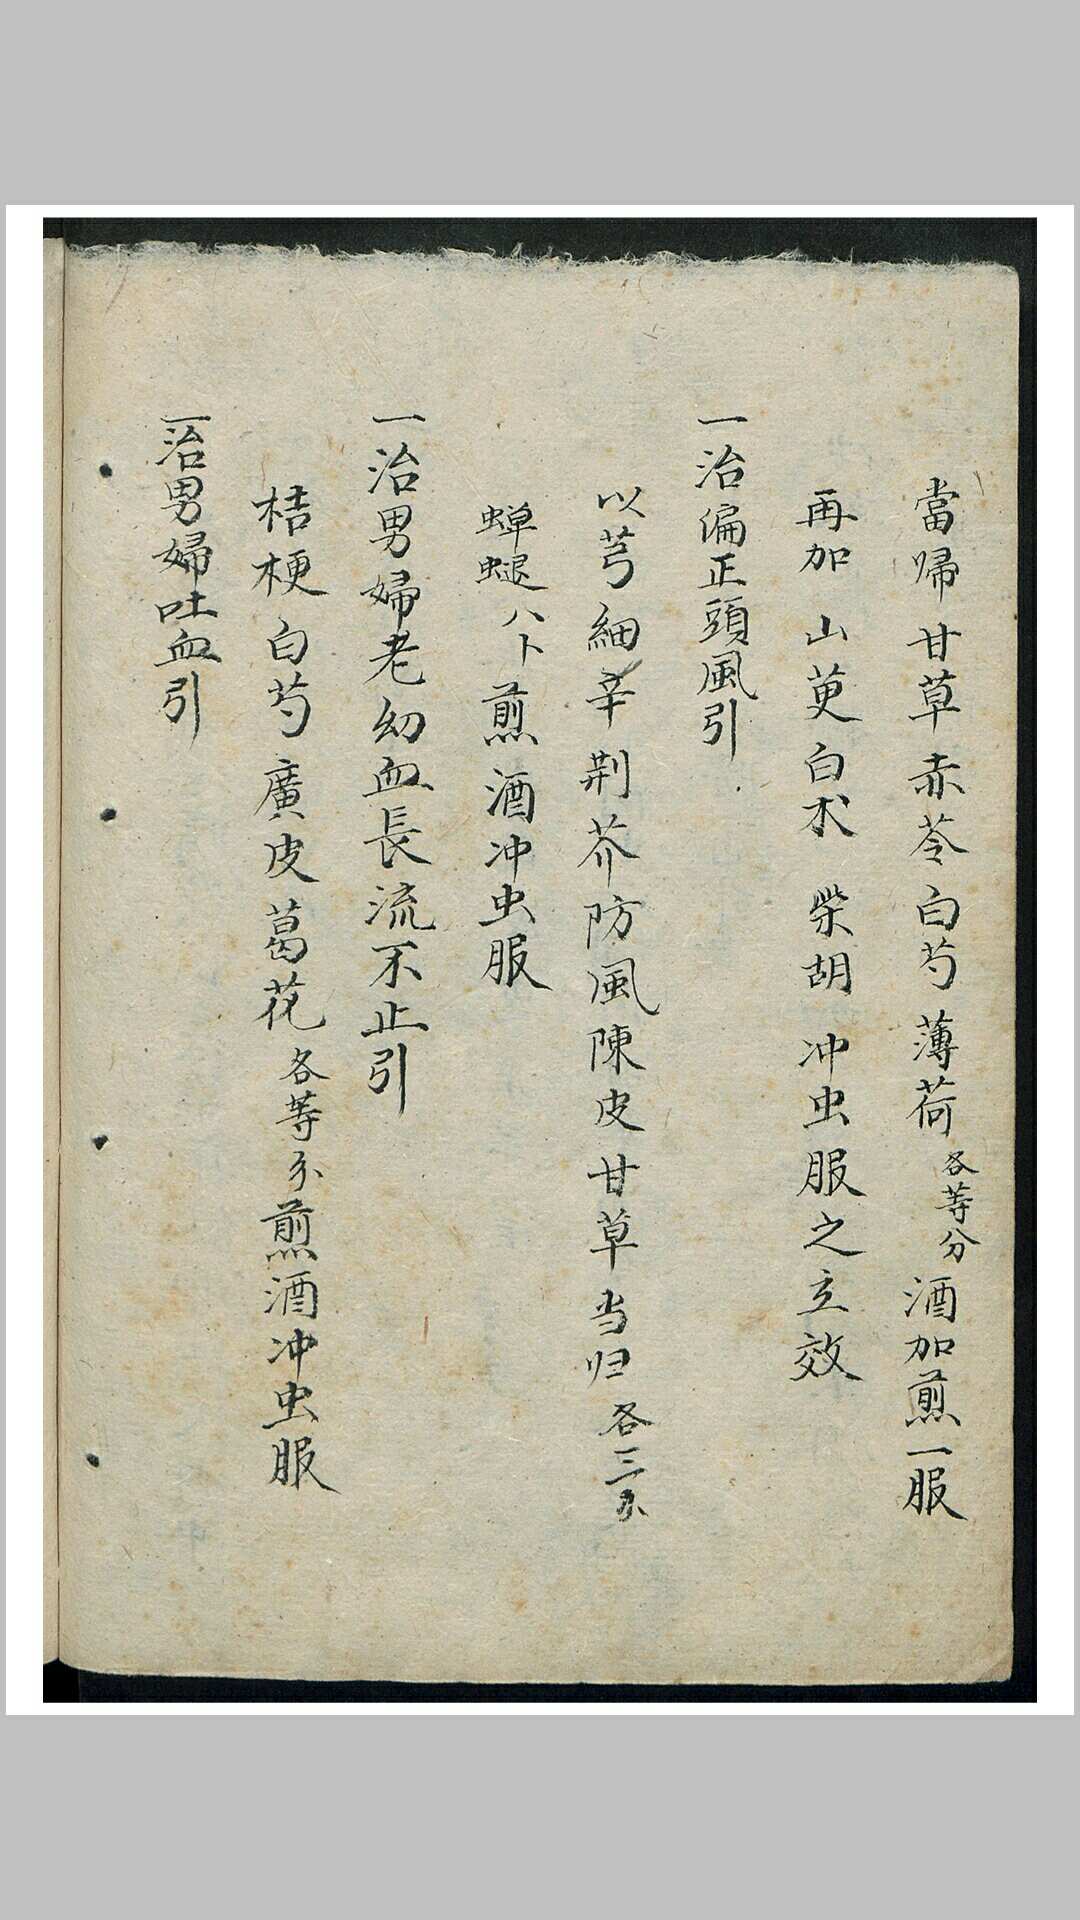 當帰甘草赤苓白芍薄荷各等分酒加煎一服
再加山茰白术柴胡冲虫服之立效
一治偏正頭風引
以芎細辛荆芥防風陳皮甘草当归各三
蝉蜕八卜煎酒冲虫服
一治男婦老幼血長流不止引
桔梗白芍廣皮葛花各等分煎酒冲虫服
一治男婦吐血引